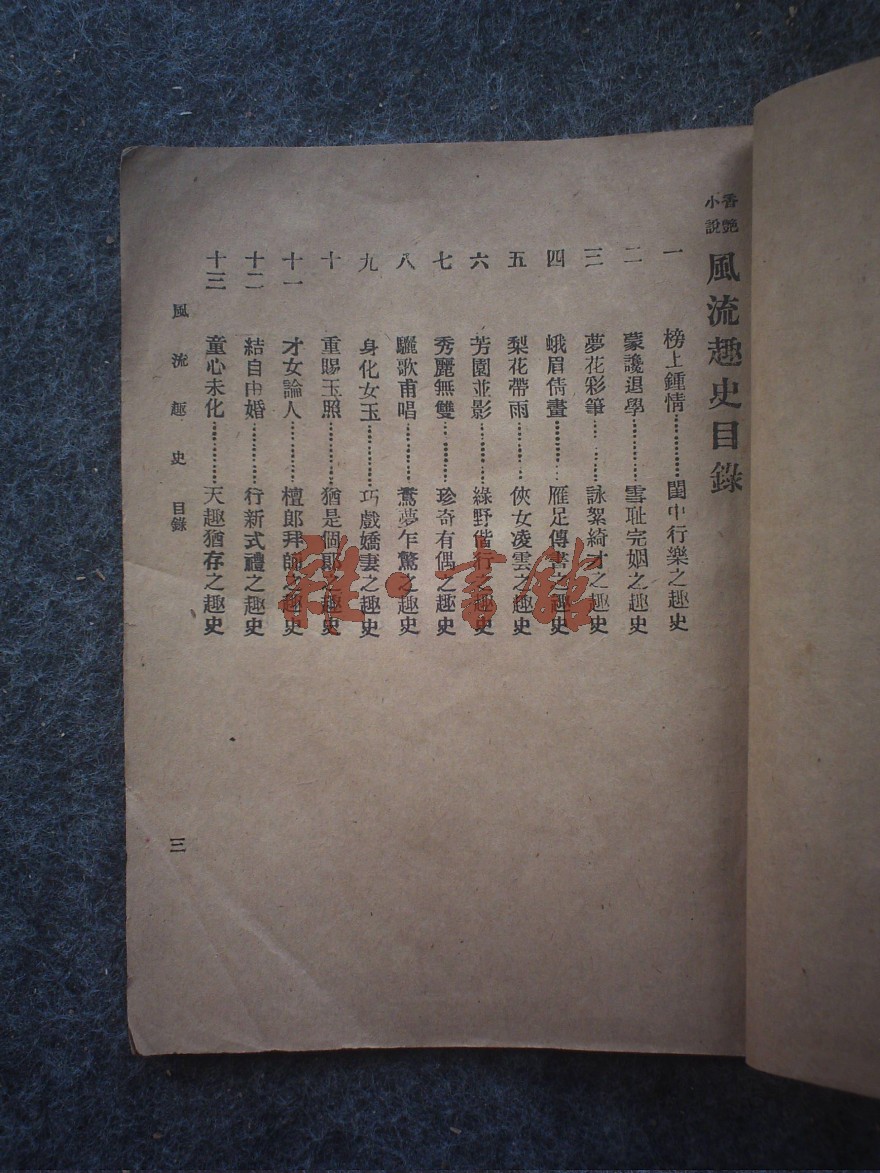 香艷小說 風流趣史目錄
一 榜上鍾情…………閨中行樂之趣史
二 蒙讒退學…………雪耻完姻之趣史
三 夢花彩筆…………詠絮綺才之趣史
四 蛾眉倩畫…………雁足傳書之趣史
五 梨花帶雨…………俠女凌雲之趣史
六 芳園並影…………綠野偕行之趣史
七 秀麗無雙…………珍奇有偶之趣史
八 驪歌甫唱…………鴛夢乍驚之趣史
九 身化女玉…………巧戲嬌妻之趣史
十 重賜玉照…………猶是個郞之趣史
十一 才女論人…………檀郞拜師之趣史
十二 結自由婚…………行新式禮之趣史
十三 童心未化…………天趣猶存之趣史
風流趣史 目錄
三
雜·書館